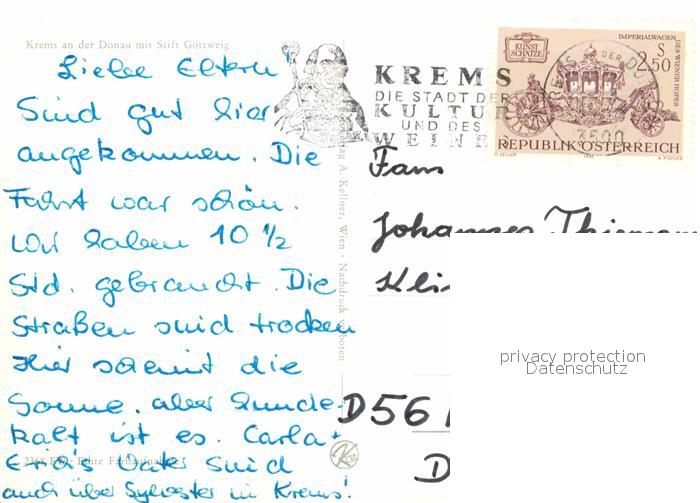 Krems an der Donau mit Stift Göttweig
Liebe Eltern
Sind gut hier
angekommen. Die
Fahrt war schön.
Wir haben 10 1/2
Std. gebraucht. Die
Straßen sind trocken
Hier scheint die
Sonne. aber hunde-
kalt ist es. Carla +
Erd's Vater sind
auch über Sylvester in Krems!
A. Kellner, Wien · Nachdruck verboten
KREMS
DIE STADT DER
KULTUR
UND DES
WEINES
KUNST
SCHÄTZE
IMPERIALWAGEN
DES WIENER HOFES
S
2.50
3500
REPUBLIK ÖSTERREICH
A. PISCHER
Fam
Johannes Thiemann
Kli
D56
D
privacy protection
Datenschutz